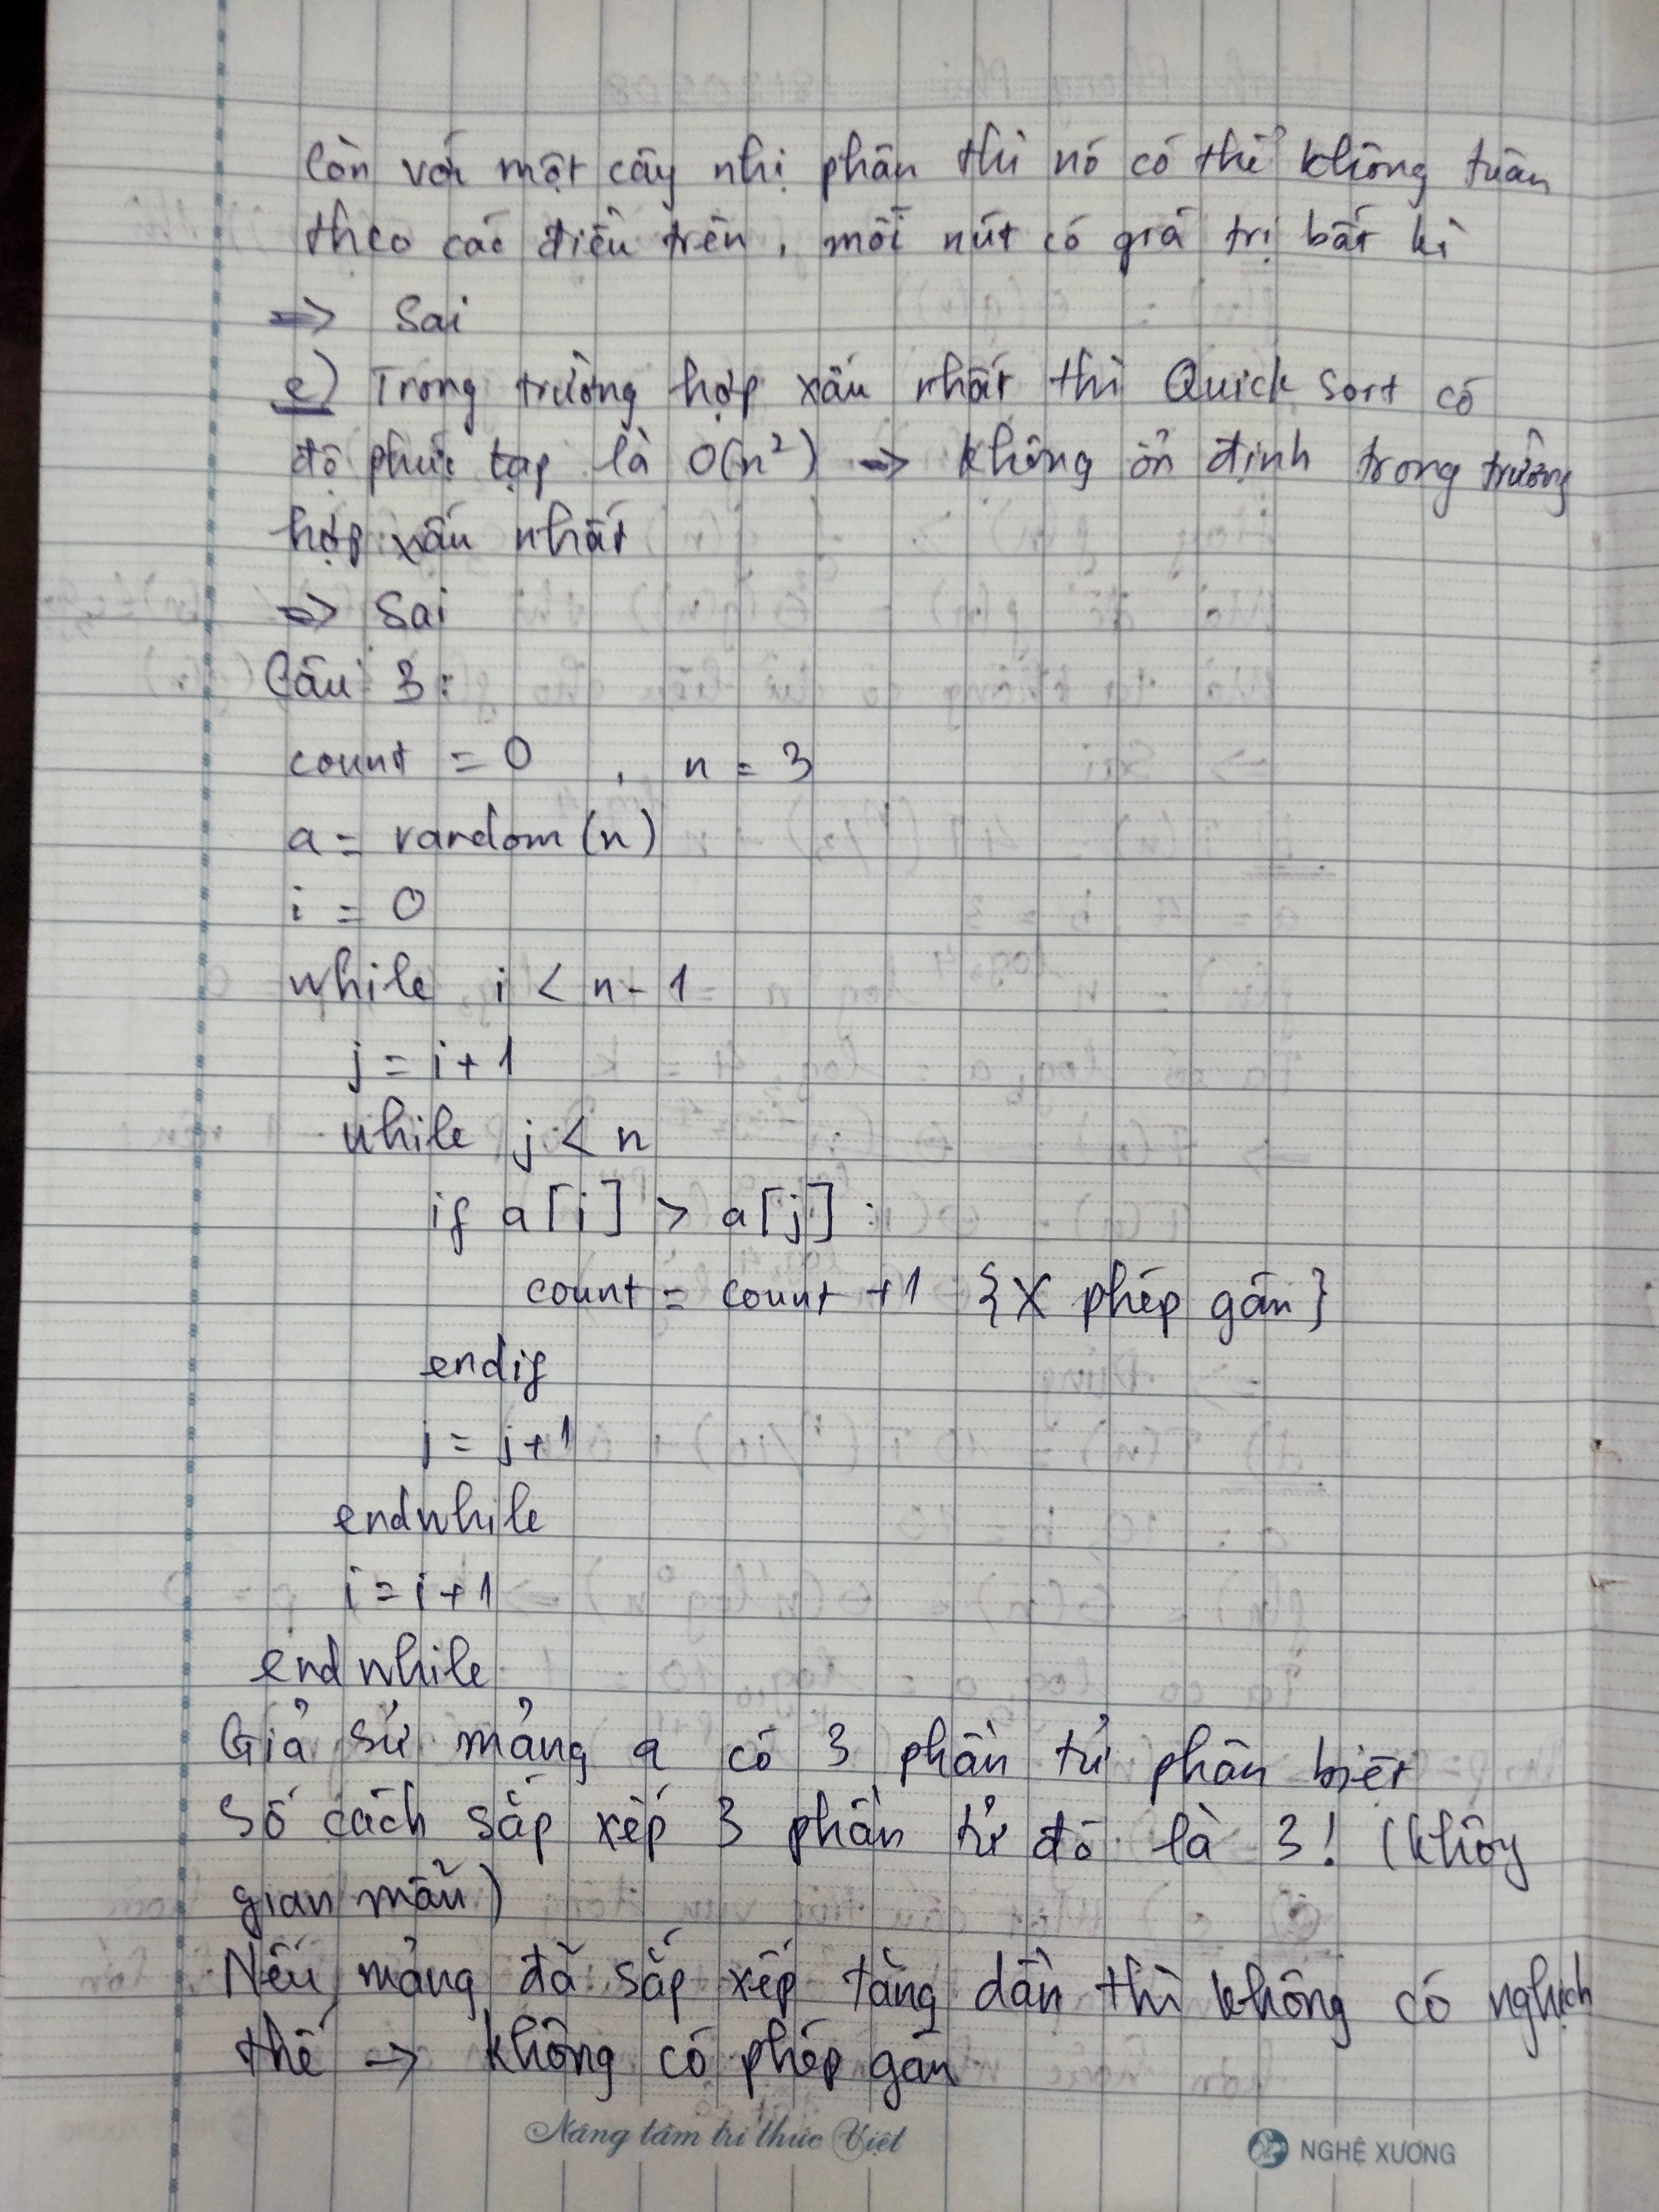 Còn với một cây nhị phân thì nó có thể không tuân
theo các điều trên, mỗi nút có giá trị bất kì
=> Sai
e) Trong trường hợp xấu nhất thì Quick Sort có
độ phức tạp là O(n²) => không ổn định trong trường
hợp xấu nhất
=> Sai
Câu 3:
count = 0 , n = 3
a = random(n)
i = 0
while i < n-1
j = i+1
while j < n
if a[i] > a[j] :
count = count +1 {X phép gán}
endif
j = j+1
endwhile
i = i+1
endwhile
Giả sử mảng a có 3 phần tử phân biệt
Số cách sắp xếp 3 phần tử đó là 3! (không
gian mẫu)
Nếu mảng đã sắp xếp tăng dần thì không có nghịch
thế -> không có phép gán
Nâng tầm tri thức Việt
NGHỆ XƯƠNG